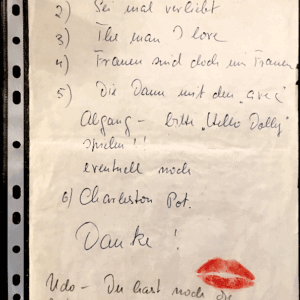 2) Sei mal verliebt
3) The man I love
4) Frauen sind doch nur Frauen
5) Die Dame mit dem "Avec"
Abgang - bitte "Hello Dolly"
spielen!!
eventuell noch
6) Charleston Pot.
Danke!
Udo - Du hast noch die